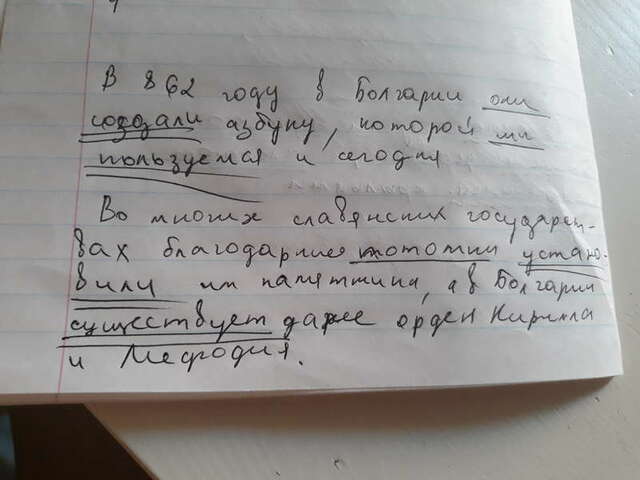 В 862 году в Болгарии они
создали азбуку, которой мы
пользуемся и сегодня
Во многих славянских государст-
вах благодарные потомки устано-
вили им памятники, а в Болгарии
существует даже орден Кирилла
и Мефодия.